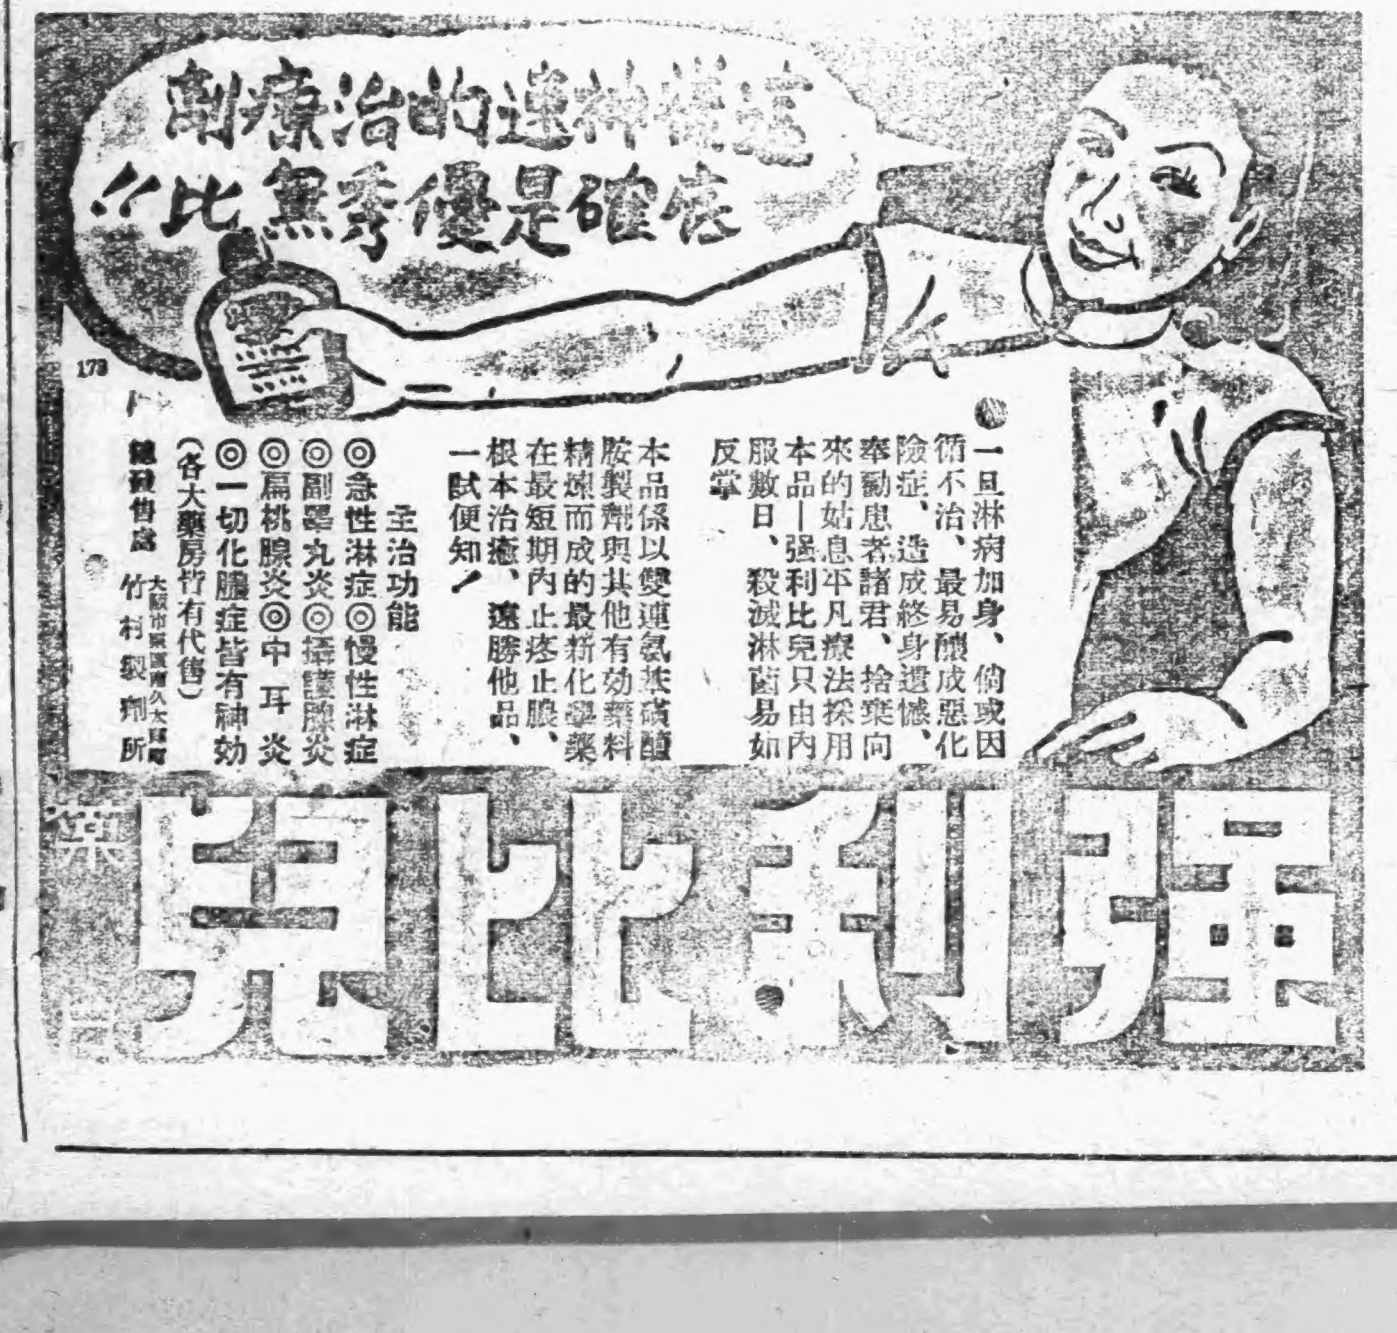 這樣神速的治療劑
確是優秀無比!!
173
一旦淋病加身、倘或因
循不治、最易釀成惡化
險症、造成終身遺憾、
奉勸患者諸君、捨棄向
來的姑息平凡療法採用
本品—强利比兒只由內
服數日、殺滅淋菌易如
反掌
本品係以雙連氨苯磺醯
胺製劑與其他有効藥料
精煉而成的最新化學藥
在最短期內止疼止膿、
根本治癒、遠勝他品、
一試便知!
主治功能
◎急性淋症◎慢性淋症
◎副睪丸炎◎攝護腺炎
◎扁桃腺炎◎中耳炎
◎一切化膿症皆有神効
(各大藥房皆有代售)
總發售處
大阪市東區南久太寶町
竹村製劑所
强利比兒